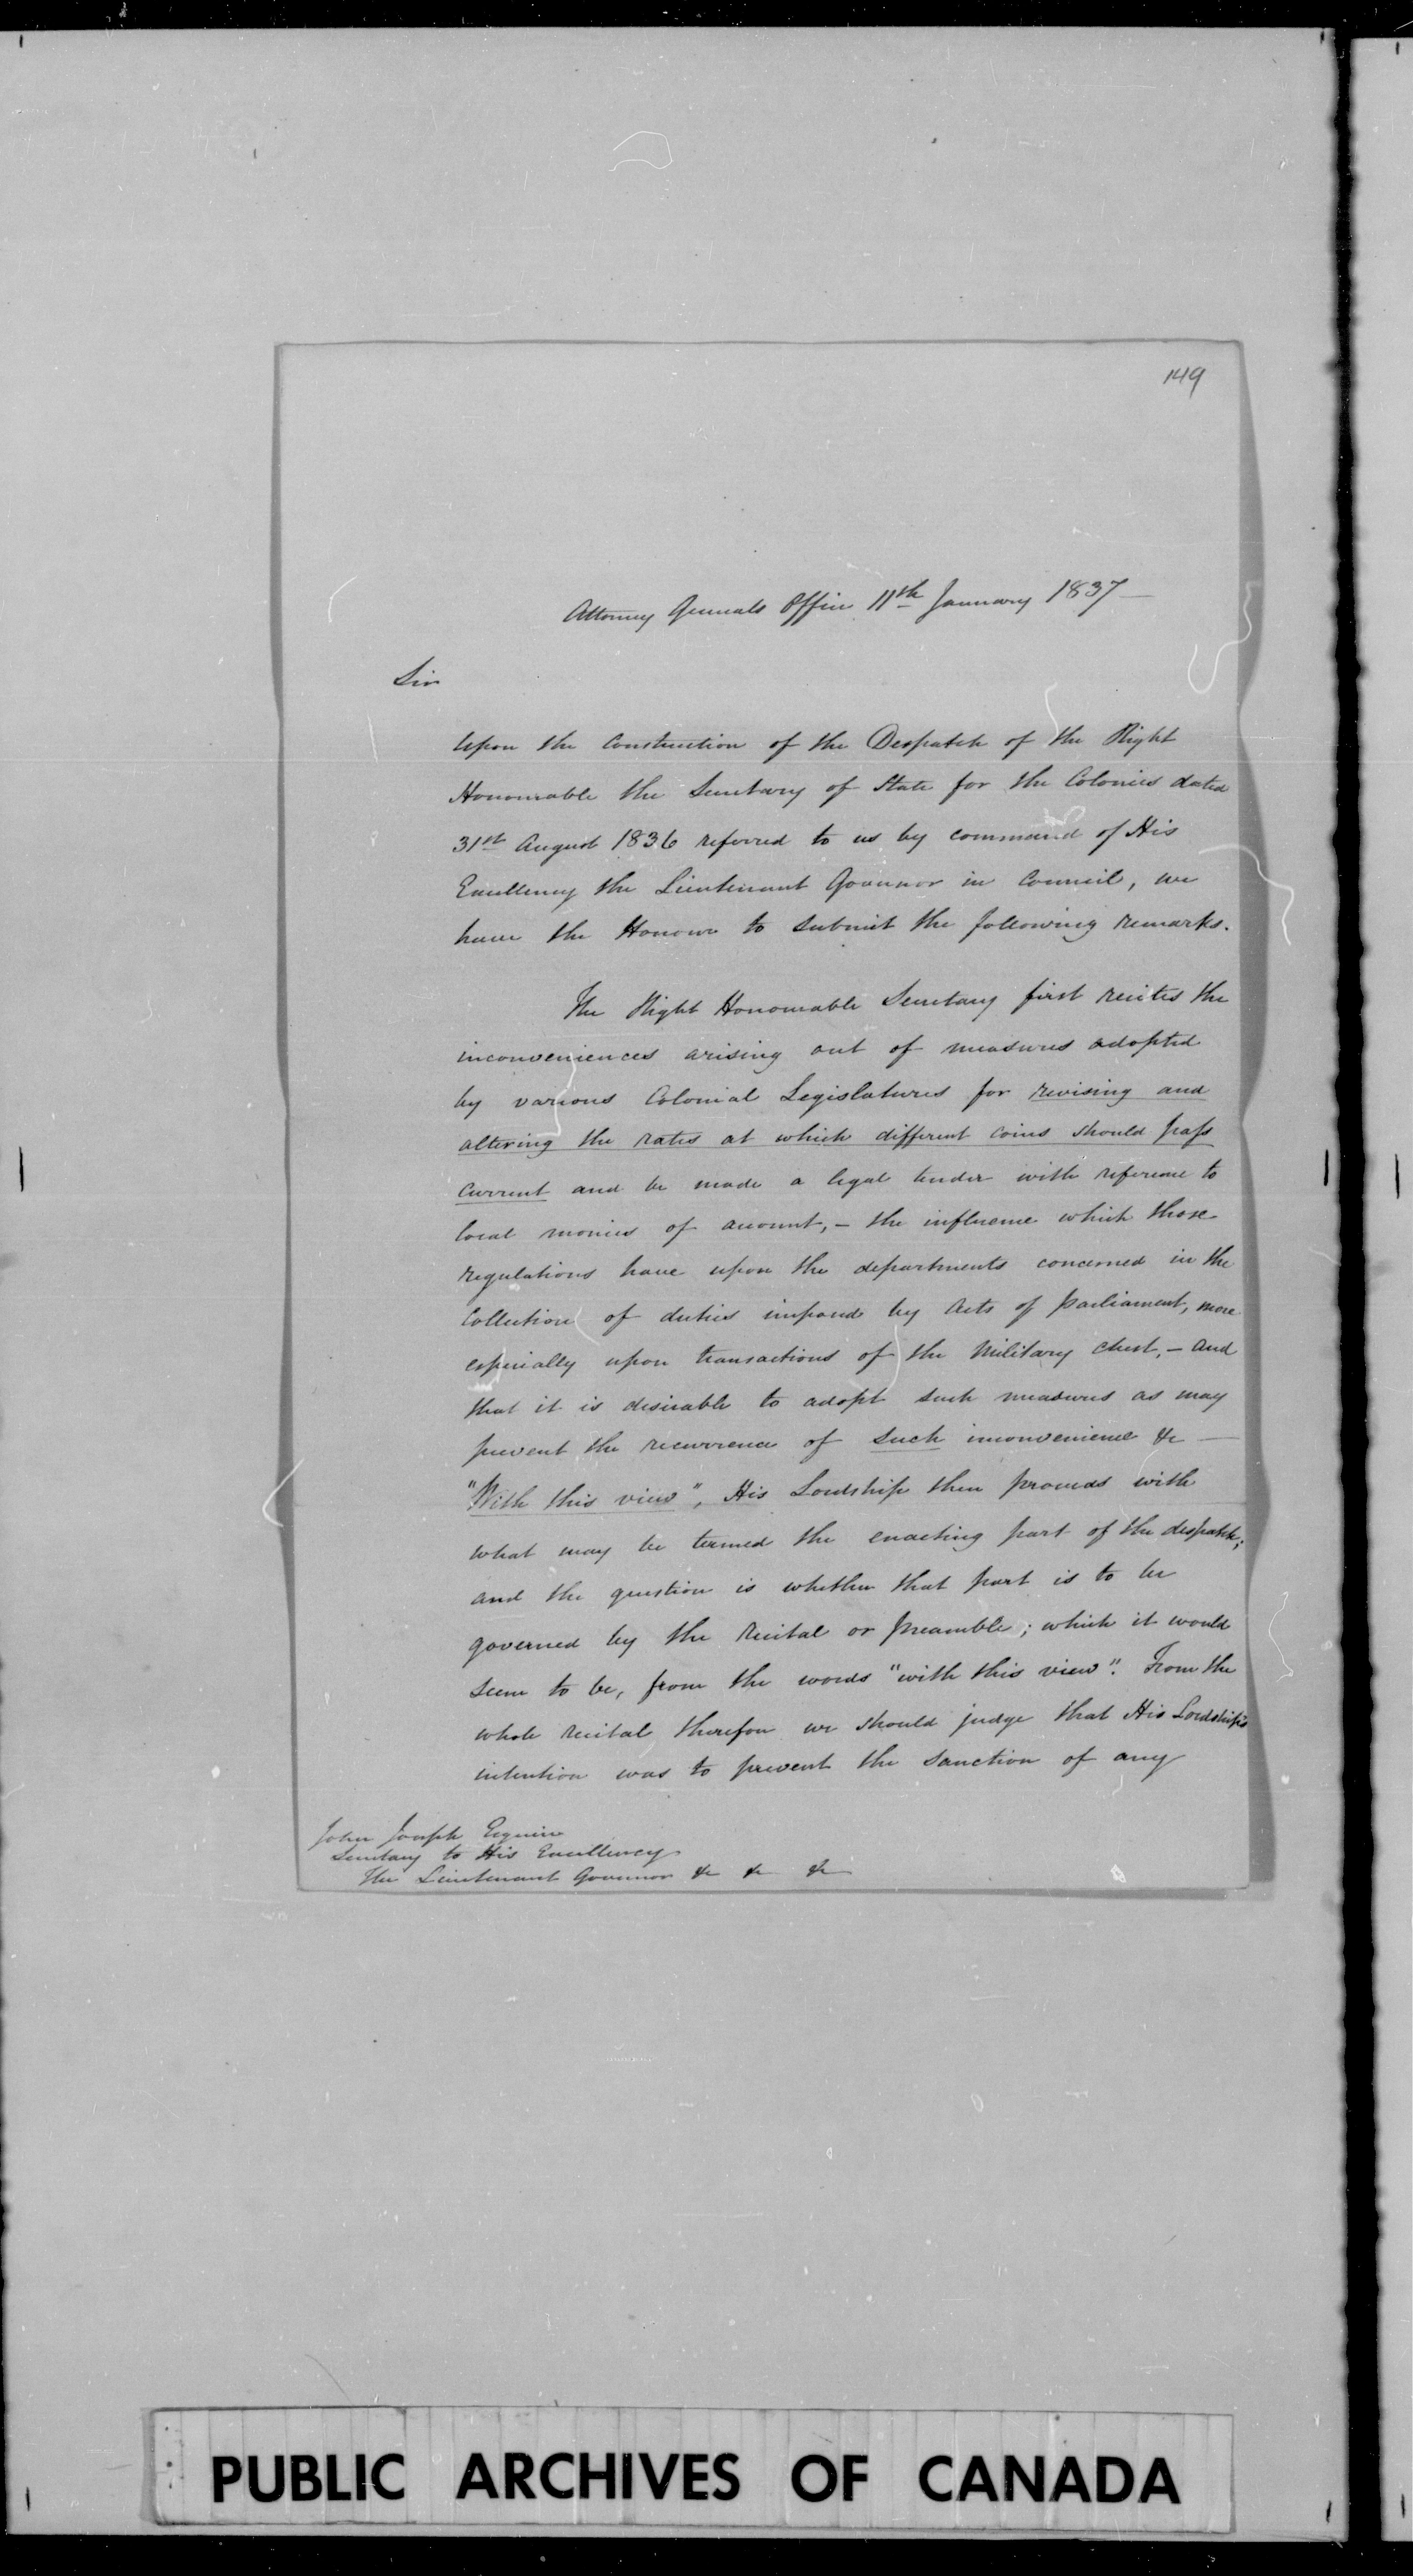 149
Attorney Generals Office 11th January 1837 —
Sir
Upon the Construction of the Despatch of the Right
Honourable the Secretary of State for the Colonies dated
31st August 1836 referred to us by command of His
Excellency the Lieutenant Governor in Council, we
have the Honour to submit the following remarks.
The Right Honourable Secretary first recites the
inconveniences arising out of measures adopted
by various Colonial Legislatures for revising and
altering the rates at which different coins should pass
current and be made a legal tender with reference to
local monies of account, — the influence which those
regulations have upon the departments concerned in the
Collection of duties imposed by Acts of Parliament, more
especially upon transactions of the Military Chest, — and
that it is desirable to adopt such measures as may
prevent the recurrence of such inconvenience &c —
"With this view", His Lordship then proceeds with
what may be termed the enacting part of the despatch;
and the question is whether that part is to be
governed by the recital or preamble; which it would
seem to be, from the words "with this view". From the
whole recital therefore we should judge that His Lordship's
intention was to prevent the sanction of any
John Joseph Esquire
Secretary to His Excellency
The Lieutenant Governor &c &c &c
PUBLIC ARCHIVES OF CANADA